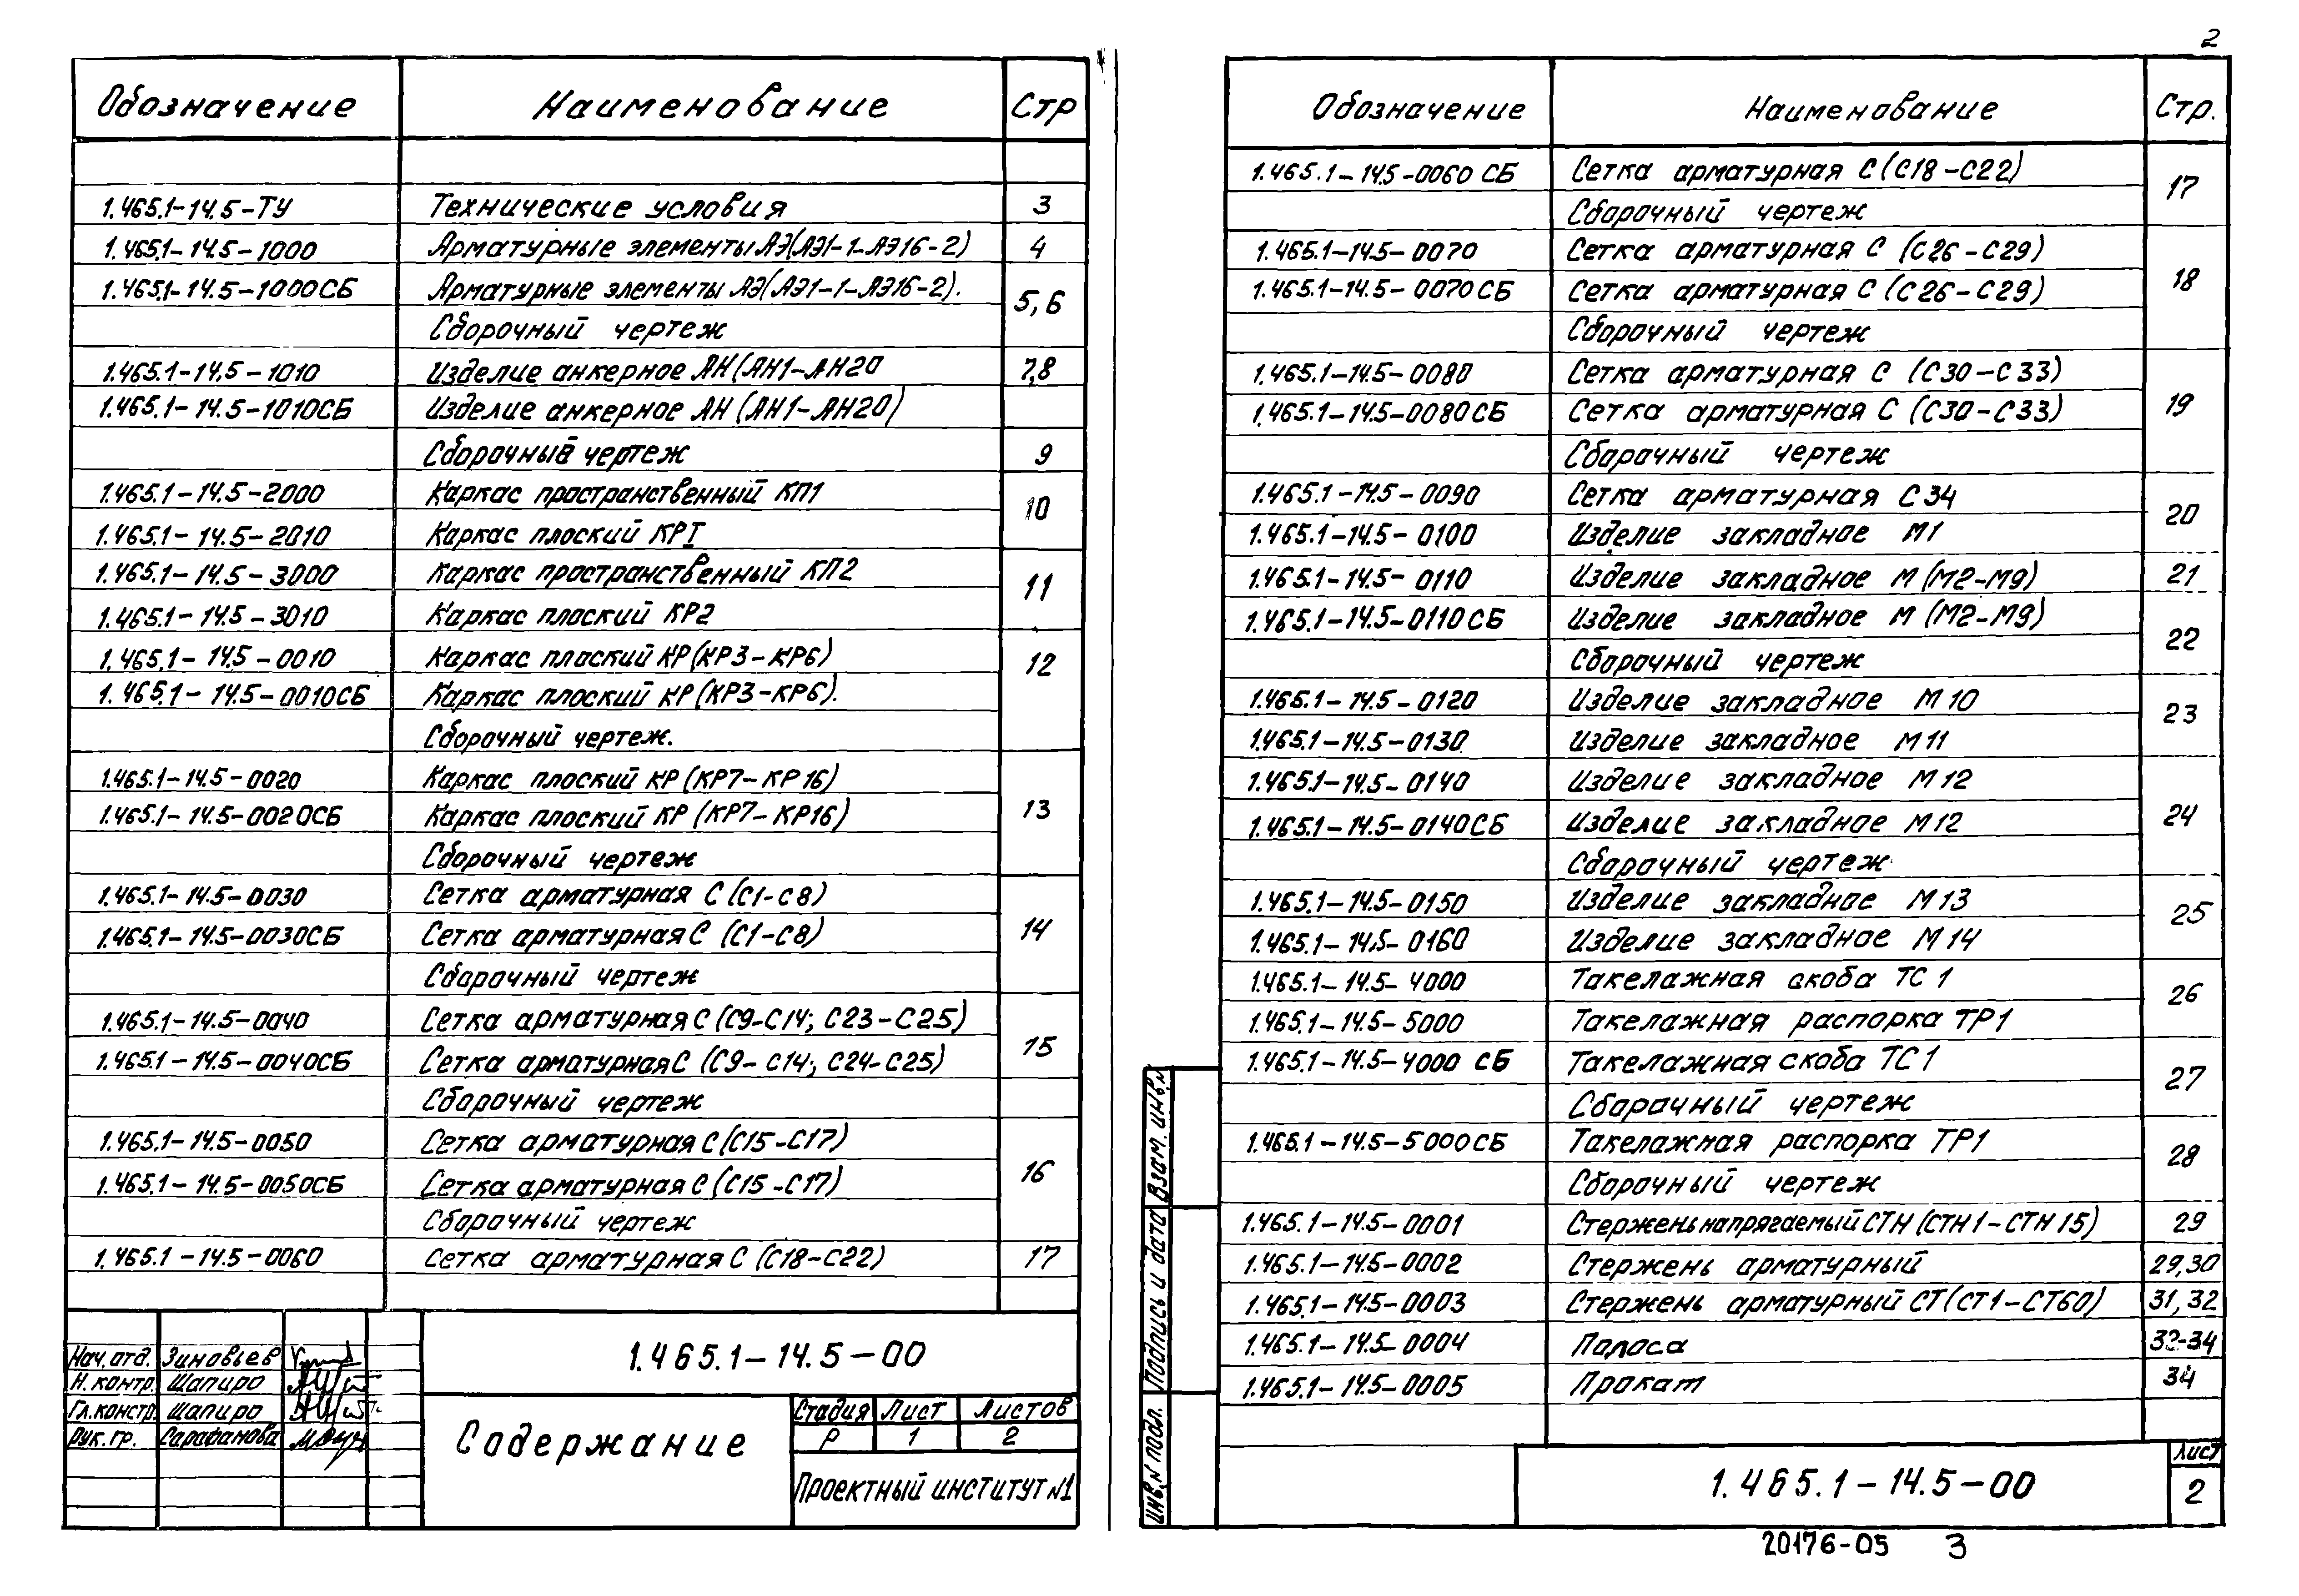 2
Обозначение Наименование Стр
1.465.1-14.5-ТУ Технические условия 3
1.465.1-14.5-1000 Арматурные элементы АЭ(АЭ1-1-АЭ16-2) 4
1.465.1-14.5-1000СБ Арматурные элементы АЭ(АЭ1-1-АЭ16-2). 5,6
Сборочный чертеж
1.465.1-14.5-1010 Изделие анкерное АН(АН1-АН20 7,8
1.465.1-14.5-1010СБ Изделие анкерное АН (АН1-АН20)
Сборочный чертеж 9
1.465.1-14.5-2000 Каркас пространственный КП1 10
1.465.1-14.5-2010 Каркас плоский КРI
1.465.1-14.5-3000 Каркас пространственный КП2 11
1.465.1-14.5-3010 Каркас плоский КР2
1.465.1-14.5-0010 Каркас плоский КР(КР3-КР6) 12
1.465.1-14.5-0010СБ Каркас плоский КР(КР3-КР6).
Сборочный чертеж.
1.465.1-14.5-0020 Каркас плоский КР(КР7-КР16) 13
1.465.1-14.5-0020СБ Каркас плоский КР (КР7-КР16)
Сборочный чертеж
1.465.1-14.5-0030 Сетка арматурная С (С1-С8) 14
1.465.1-14.5-0030СБ Сетка арматурная С (С1-С8)
Сборочный чертеж
1.465.1-14.5-0040 Сетка арматурная С (С9-С14; С23-С25) 15
1.465.1-14.5-0040СБ Сетка арматурная С (С9-С14; С24-С25)
Сборочный чертеж
1.465.1-14.5-0050 Сетка арматурная С(С15-С17) 16
1.465.1-14.5-0050СБ Сетка арматурная С (С15-С17)
Сборочный чертеж
1.465.1-14.5-0060 Сетка арматурная С (С18-С22) 17
1.465.1-14.5-00
Нач. отд. Зиновьев
Н. контр. Шапиро
Гл.констр. Шапиро
Рук. гр. Сарафанова
Содержание
Стадия Лист Листов
Р 1 2
Проектный институт №1
Обозначение Наименование Стр.
1.465.1-14.5-0060 СБ Сетка арматурная С(С18-С22) 17
Сборочный чертеж
1.465.1-14.5-0070 Сетка арматурная С (С26-С29) 18
1.465.1-14.5-0070СБ Сетка арматурная С (С26-С29)
Сборочный чертеж
1.465.1-14.5-0080 Сетка арматурная С (С30-С33) 19
1.465.1-14.5-0080СБ Сетка арматурная С (С30-С33)
Сборочный чертеж
1.465.1-14.5-0090 Сетка арматурная С34 20
1.465.1-14.5-0100 Изделие закладное М1
1.465.1-14.5-0110 Изделие закладное М(М2-М9) 21
1.465.1-14.5-0110СБ Изделие закладное М (М2-М9) 22
Сборочный чертеж
1.465.1-14.5-0120 Изделие закладное М10 23
1.465.1-14.5-0130 Изделие закладное М11
1.465.1-14.5-0140 Изделие закладное М12 24
1.465.1-14.5-0140СБ Изделие закладное М12
Сборочный чертеж
1.465.1-14.5-0150 Изделие закладное М13 25
1.465.1-14.5-0160 Изделие закладное М14
1.465.1-14.5-4000 Такелажная скоба ТС1 26
1.465.1-14.5-5000 Такелажная распорка ТР1
1.465.1-14.5-4000 СБ Такелажная скоба ТС1 27
Сборочный чертеж
1.465.1-14.5-5000СБ Такелажная распорка ТР1 28
Сборочный чертеж
1.465.1-14.5-0001 Стержень напрягаемый СТН(СТН1-СТН15) 29
1.465.1-14.5-0002 Стержень арматурный 29,30
1.465.1-14.5-0003 Стержень арматурный СТ(СТ1-СТ60) 31,32
1.465.1-14.5-0004 Полоса 33-34
1.465.1-14.5-0005 Прокат 34
Взам. инв.№
Подпись и дата
Инв.№ подл.
1.465.1-14.5-00
Лист
2
20176-05 3